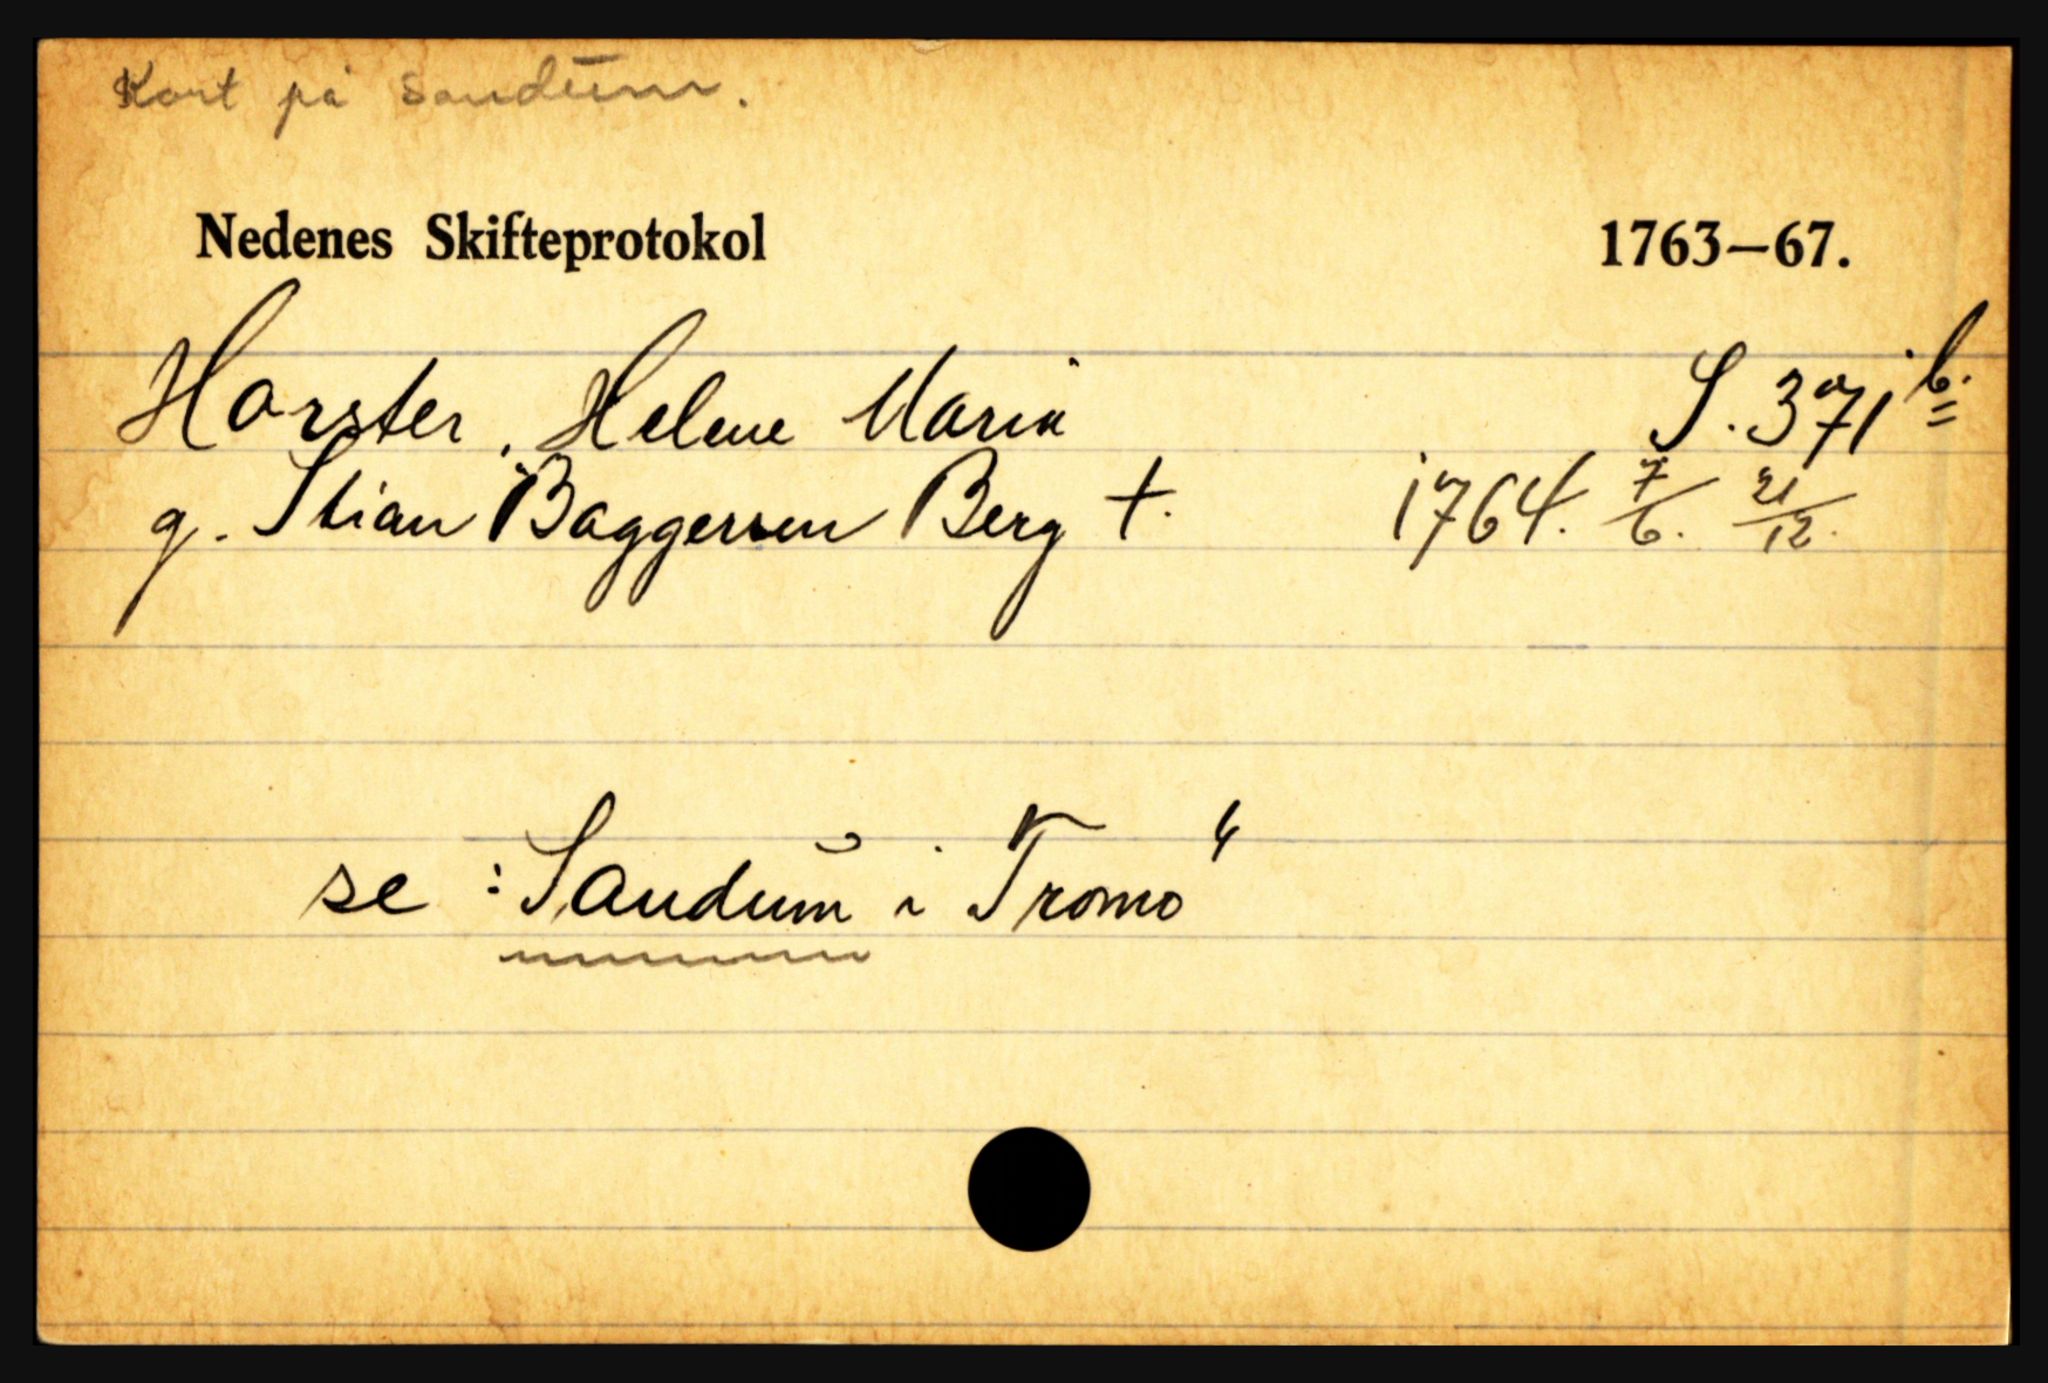 Kort på Sandum.
Nedenes Skifteprotokol 1763–67.
Horster, Helene Maria S. 371 b.
g. Stian Baggersen Berg †. 1764. 7/6. 21/12.
se : Sandum i Tromö